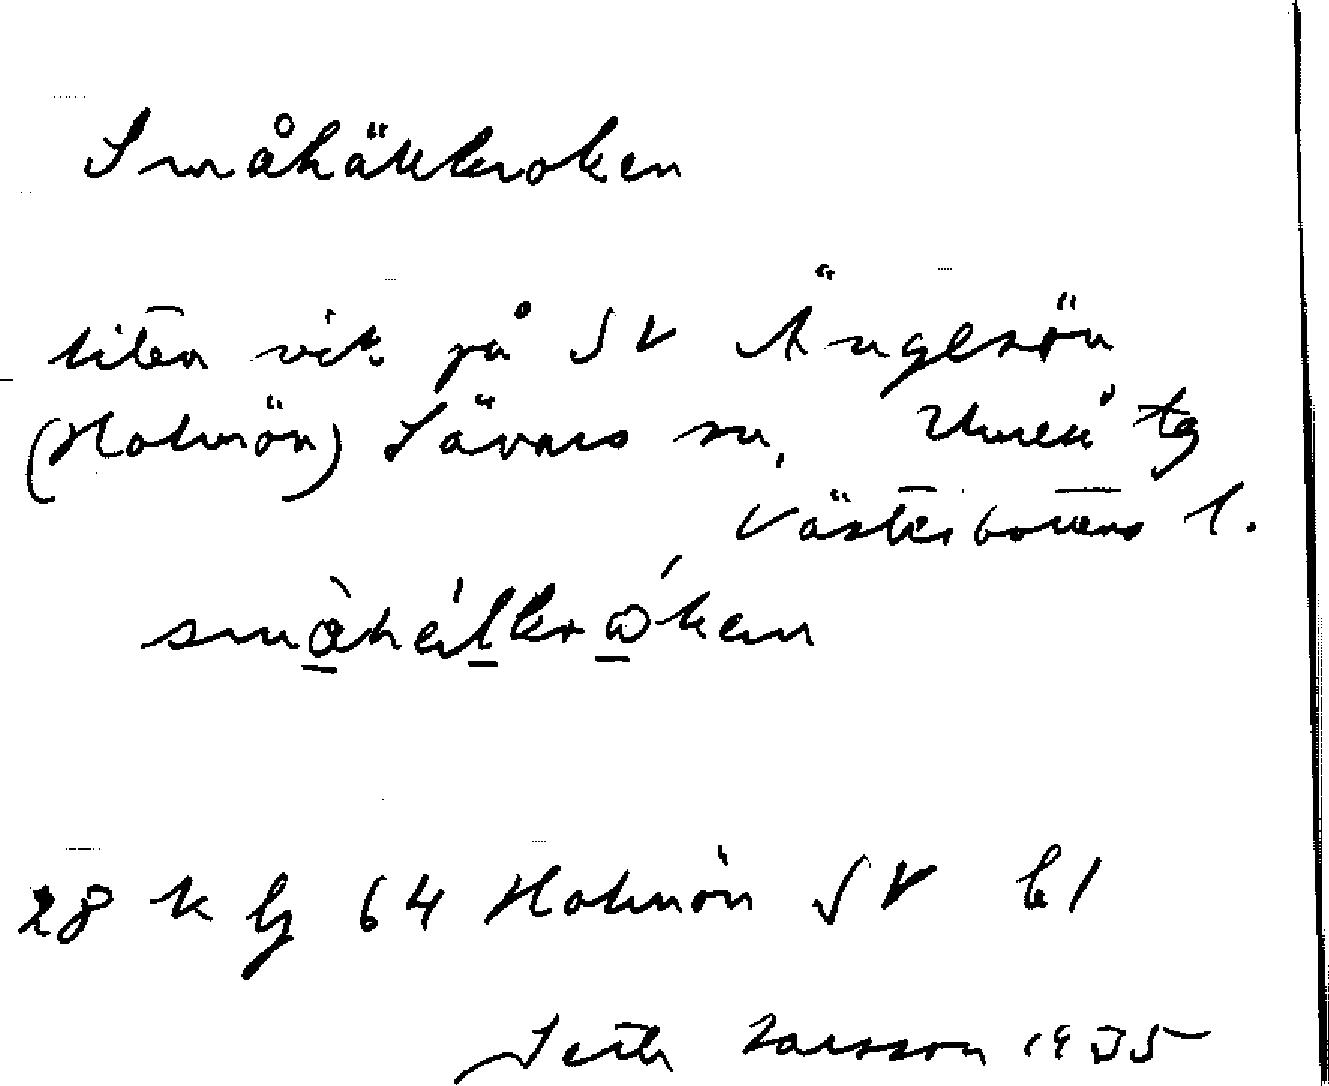 Småhällkroken
liten vik på SV Ängesön
(Holmön) Sävars sn, Umeå tg
Västerbottens l.
småhällkroken
28 k bj 64 Holmön SV b1
Seth Larsson 1935